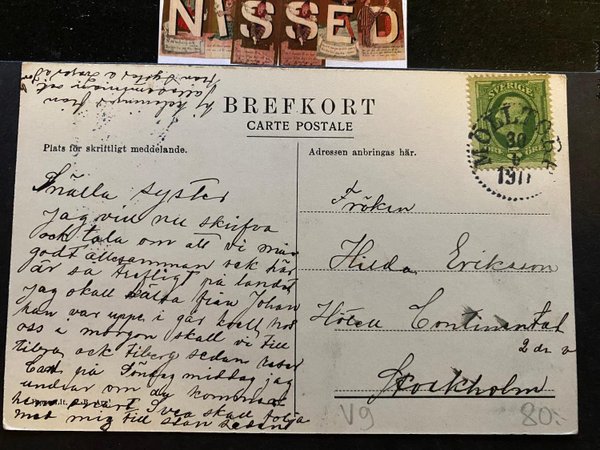 NISSED
BREFKORT
CARTE POSTALE
Plats för skriftligt meddelande.
Adressen anbringas här.
SVERIGE
30
1911
Snälla syster
jag vill nu skrifva
och tala om att vi mår
godt allesamman och här
är så trefligt på landet
jag skall hälsa från Johan
han var uppe i går kväll hos
oss i morgon skall vi till
och sedan
på middag jag
undrar om du kommer
hem snart Svea skall följa
med mig till stan
Fröken
Hilda Eriksson
Hotell Continental
2 dr v
Stockholm
V9
80:-